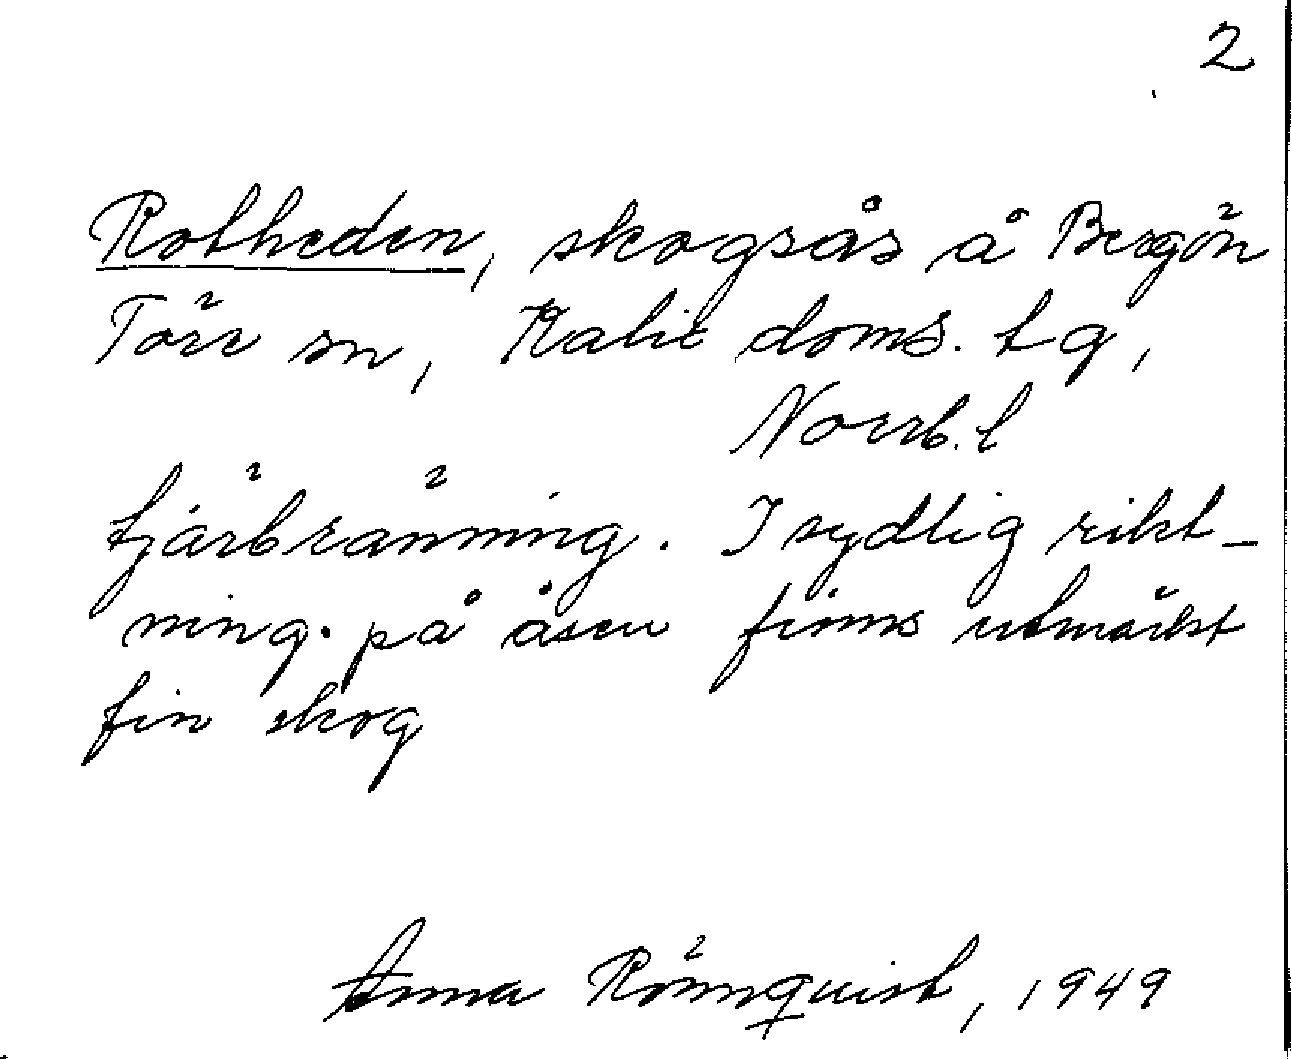 2
Rotheden, skogsås å Bergön
Töre sn, Kalix doms. tg,
Norrb. l
tjärbränning. I sydlig rikt-
ning. på åsen finns utmärkt
fin skog
Anna Rönnquist, 1949